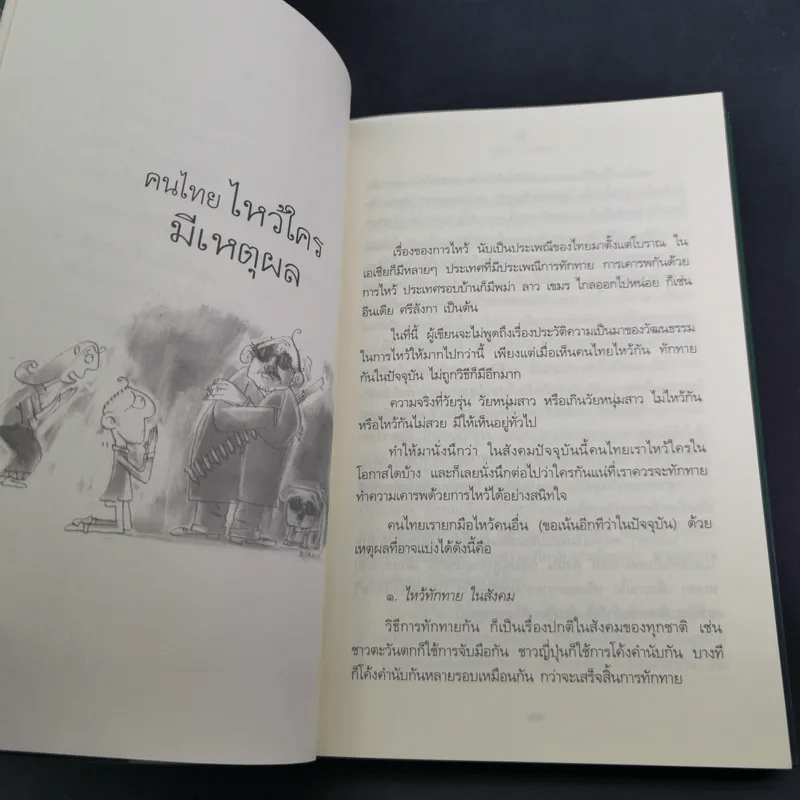 คนไทย ไหว้ใคร
มีเหตุผล
เรื่องของการไหว้ นับเป็นประเพณีของไทยมาตั้งแต่โบราณ ใน
เอเชียก็มีหลายๆ ประเทศที่มีประเพณีการทักทาย การเคารพกันด้วย
การไหว้ ประเทศรอบบ้านก็มีพม่า ลาว เขมร ไกลออกไปหน่อย ก็เช่น
อินเดีย ศรีลังกา เป็นต้น
ในที่นี้ ผู้เขียนจะไม่พูดถึงเรื่องประวัติความเป็นมาของวัฒนธรรม
ในการไหว้ให้มากไปกว่านี้ เพียงแต่เมื่อเห็นคนไทยไหว้กัน ทักทาย
กันในปัจจุบัน ไม่ถูกวิธีก็มีอีกมาก
ความจริงที่วัยรุ่น วัยหนุ่มสาว หรือเกินวัยหนุ่มสาว ไม่ไหว้กัน
หรือไหว้กันไม่สวย มีให้เห็นอยู่ทั่วไป
ทำให้มานั่งนึกว่า ในสังคมปัจจุบันนี้คนไทยเราไหว้ใครใน
โอกาสใดบ้าง และก็เลยนั่งนึกต่อไปว่าใครกันแน่ที่เราควรจะทักทาย
ทำความเคารพด้วยการไหว้ได้อย่างสนิทใจ
คนไทยเรายกมือไหว้คนอื่น (ขอเน้นอีกทีว่าในปัจจุบัน) ด้วย
เหตุผลที่อาจแบ่งได้ดังนี้คือ
๑. ไหว้ทักทาย ในสังคม
วิธีการทักทายกัน ก็เป็นเรื่องปกติในสังคมของทุกชาติ เช่น
ชาวตะวันตกก็ใช้การจับมือกัน ชาวญี่ปุ่นก็ใช้การโค้งคำนับกัน บางที
ก็โค้งคำนับกันหลายรอบเหมือนกัน กว่าจะเสร็จสิ้นการทักทาย